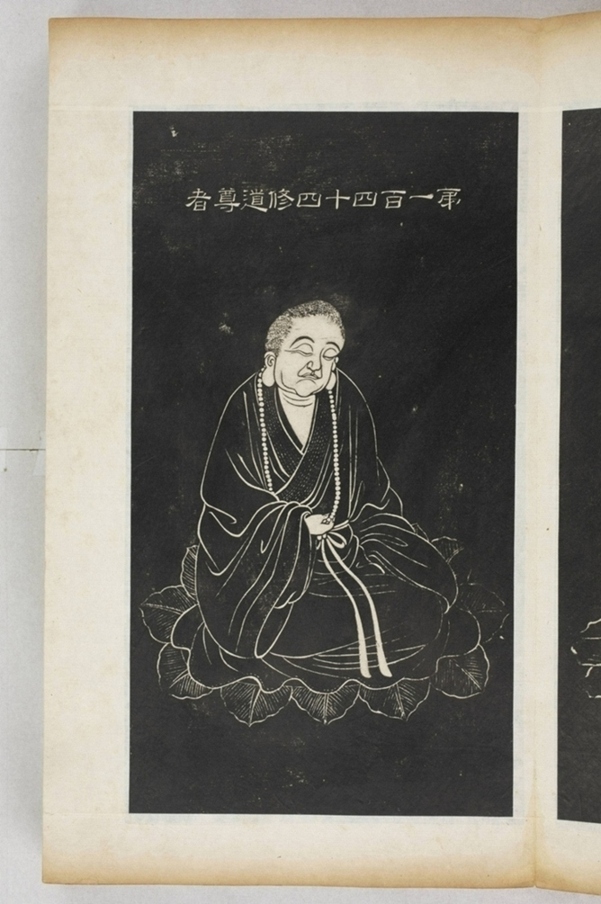 苐一百四十四修道尊者